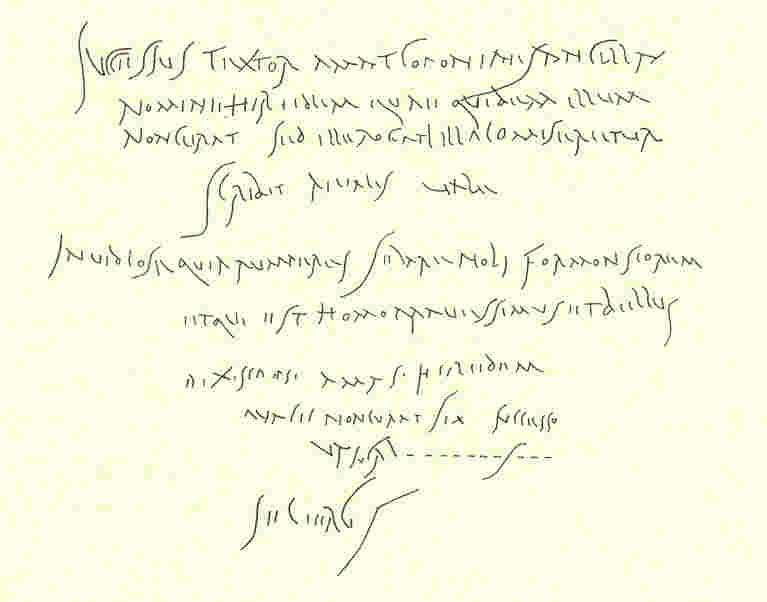 Successus textor amat coponiaes ancilla
nomine Hiredem quae quidem illum
non curat sed ille rogat illa com miseretur
scribit rivalis vale
Invidiose quia rumperes sedare noli formonsiorem
et qui est homo pravessimus et bellus
scripsi amas Hiredem
non curat Six Successo
ut supra s
Severus